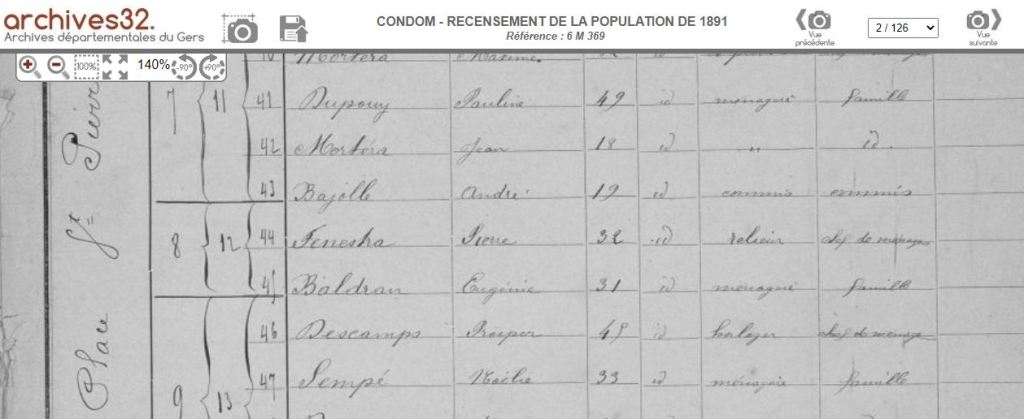 archives32.
Archives départementales du Gers
CONDOM - RECENSEMENT DE LA POPULATION DE 1891
Référence : 6 M 369
Vue précédente
2 / 126
Vue suivante
100% 140% -90° +90°
Place St Pierre
Mortéra Maxime
7 11 41 Dupouy Pauline 49 id ménagère famille
42 Mortéra Jean 18 id " id.
43 Bajolle André 19 id commis commis
8 12 44 Fenestra Pierre 32 id relieur chef de ménage
45 Baldran Eugénie 31 id ménagère famille
46 Descamps Prosper 48 id horloger chef de ménage
9 13 47 Sempé Noélie 33 id ménagère famille